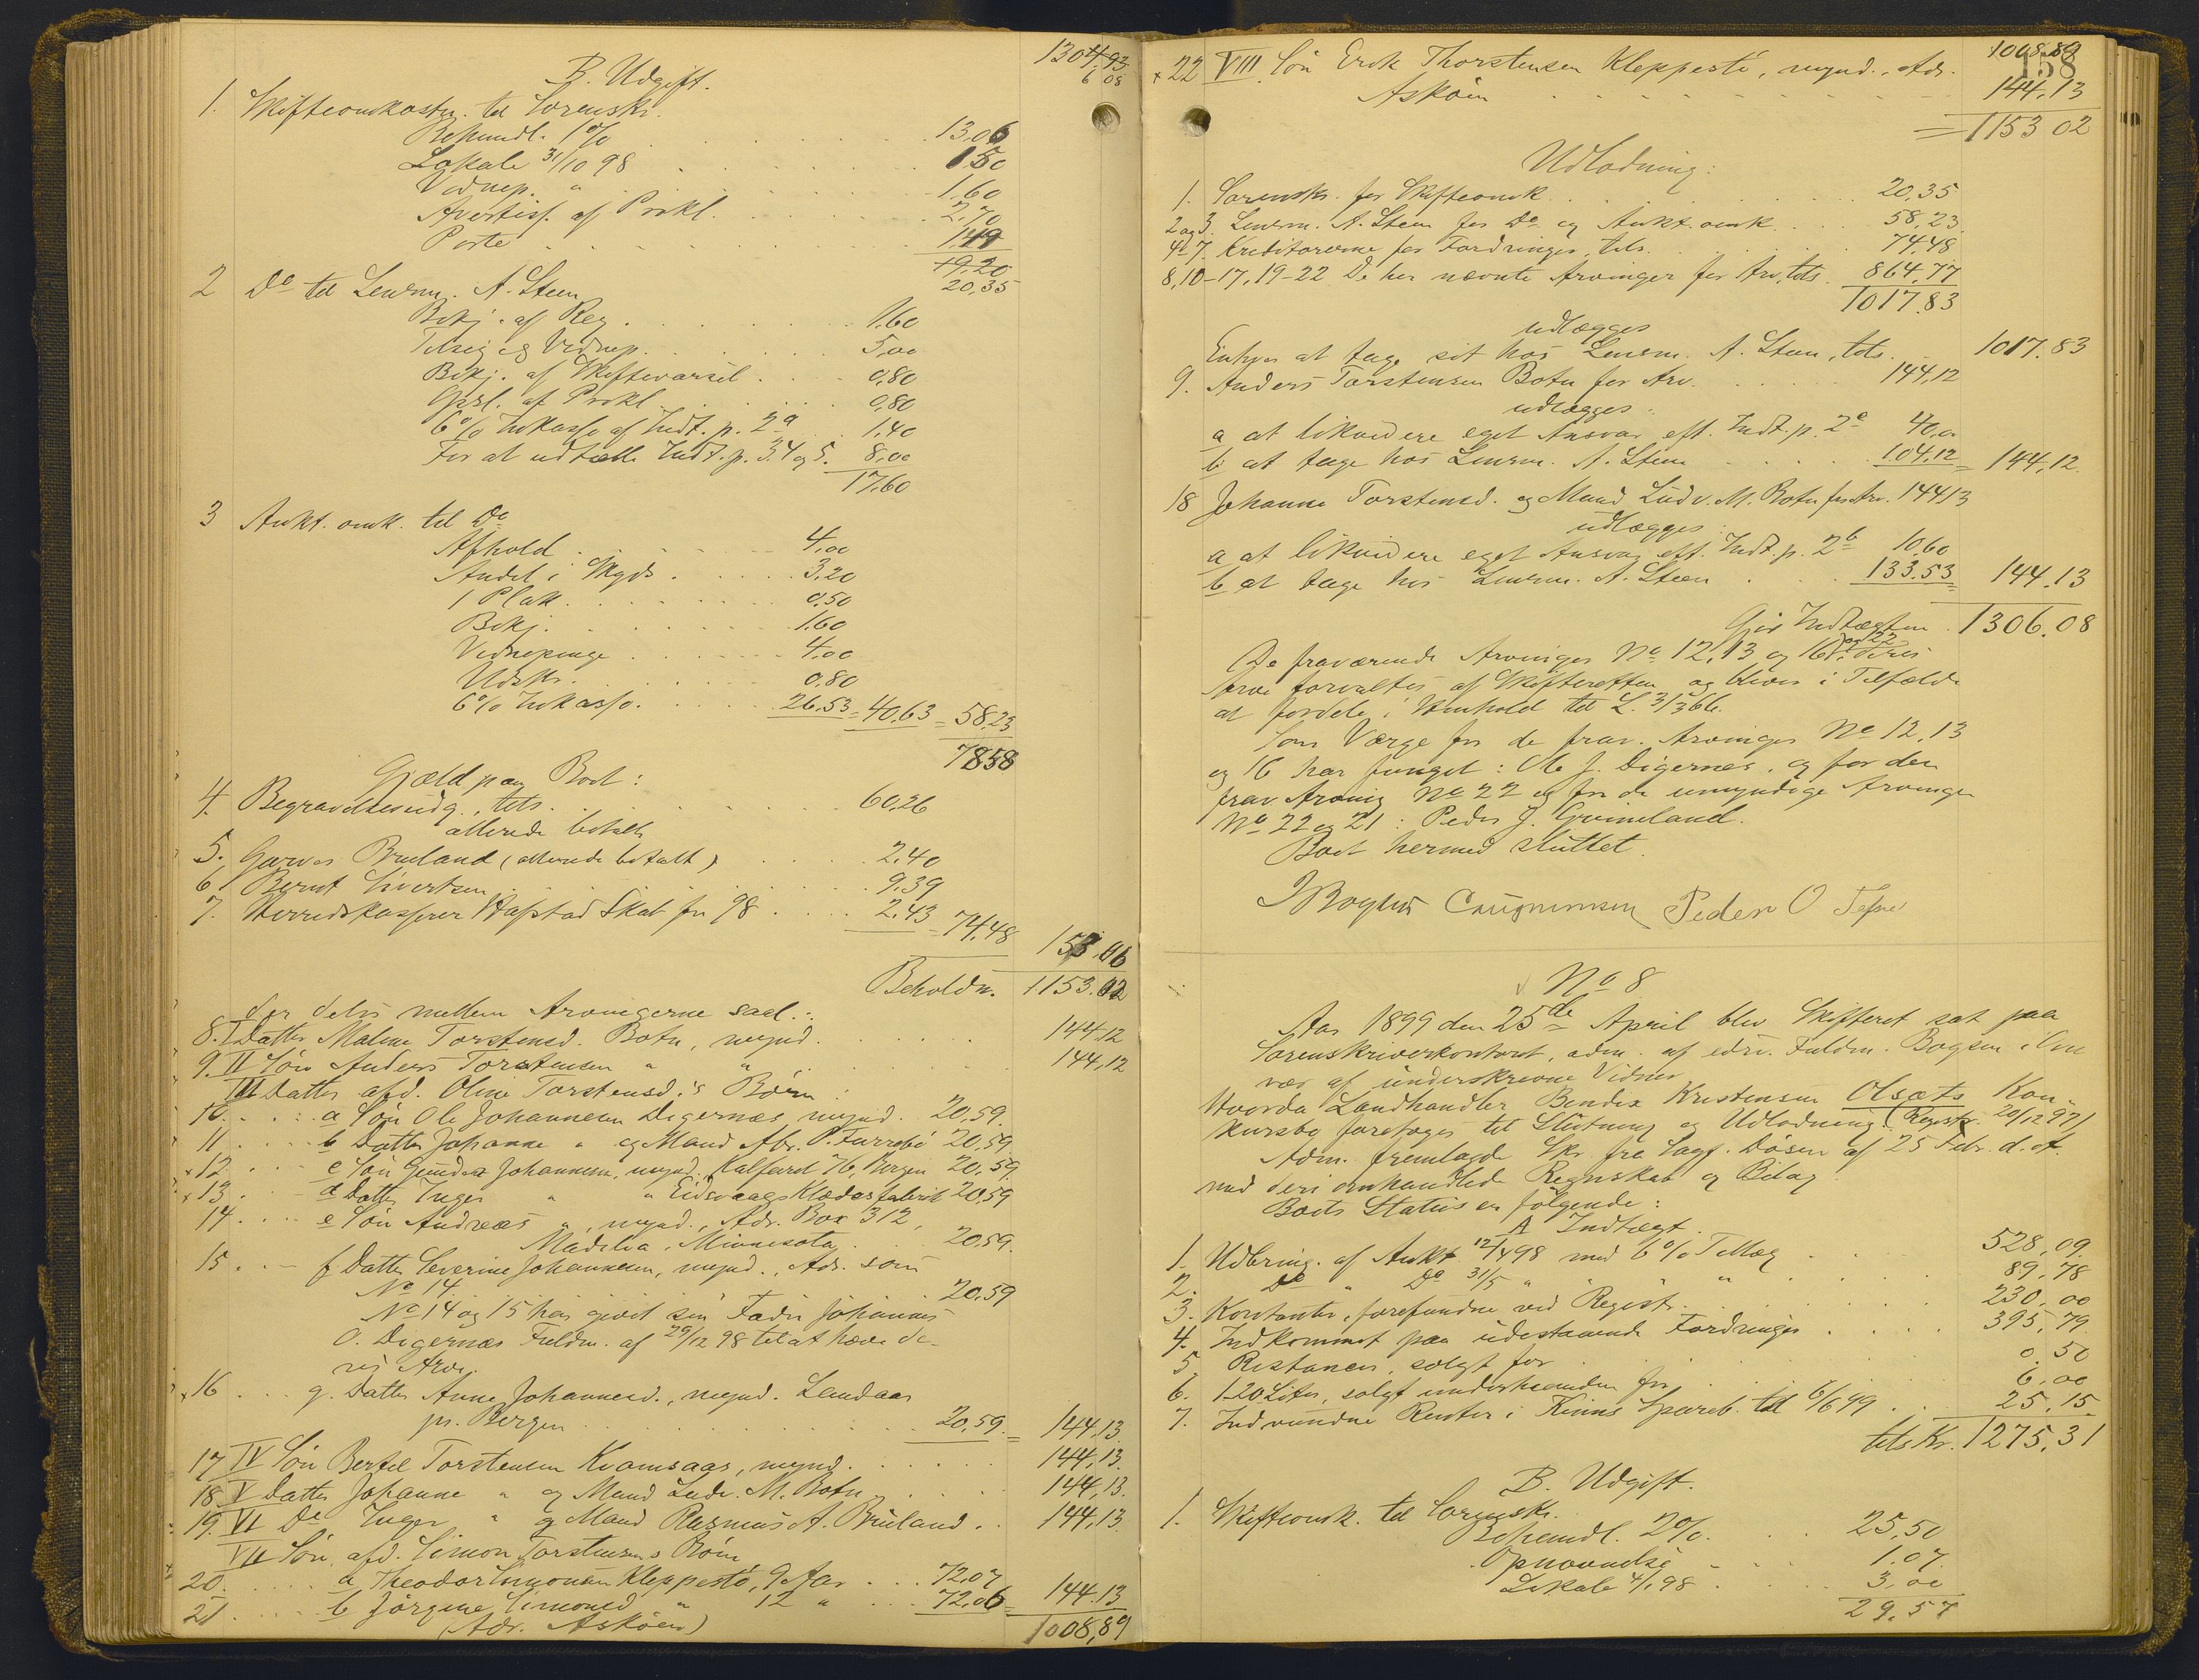 1304,93
6 08
B. Udgift.
1. Skifteomkostn. til Sorenskr.
Behandl. 1% 13,06
Lokale 31/10 98 1,50
Vidnep. " 1,60
Avertiss. af Prokl. 2,70
Porto 1,49
19,20
20,35
2 Do til Lensm. A. Steen
Bekj. af Reg. 1,60
Tilsig. og Vidnep. 5,00
Bekj. af Skiftevarsel 0,80
Opsl. af Prokl. 0,80
6% Inkasso af Indt. p. 2a 1,40
For at udtælle Indt. p. 3 4 og 5. 8,00
17,60
3 Aukt. omk. til Do
Afhold 4,00
Andel i Skyds 3,20
1 Plak. 0,50
Bekj. 1,60
Vidnepenge 4,00
Udskr. 0,80
6% Inkasso. 26,53 = 40,63 = 58,23
78,58
Gjæld paa Boet:
4. Begravelsesudg., tils. 60,26
allerede betalt
5. Garver Bruland (allerede betalt) 2,40
6 Bernt Sivertsen 9,39
7. Herredskasserer Hafstad Skat for 98 2,43 = 74,48 153.06
Beholdn. 1153.02
der deles mellem Arvingerne saal.:
8. I Datter Malene Torstensd. Botn, mynd. 144,12
9. II Søn Anders Torstensen " " 144,12
III Datter afd. Oline Torstensd.'s Børn:
10. a Søn Ole Johannesen Digernæs, mynd. 20,59.
11 b Datter Johanne " og Mand Abr. P. Furrebø 20,59
x12 c Søn Gunder Johannesen, mynd. Kalfaret 76, Bergen 20,59.
x13. d Datter Inger " " Eidsvaags Klædesfabrik 20,59
14 e Søn Andreas ", mynd., Adr. Box 312,
Madelia, Minnesota 20,59.
15 f Datter Severine Johannesen, mynd., Adr. som
No 14. 20,59
No 14 og 15 har givet sin Fader Johannes
O. Digernæs Fuldm. af 29/12 98 til at hæve de-
res Arv.
x16 g. Datter Anne Johannesd., mynd. Landaas
pr. Bergen 20,59 = 144,13.
17 IV Søn Bertel Torstensen Kvamsaas, mynd. 144,13.
18 V Datter Johanne " og Mand Ludv. M. Botn 144,13.
19. VI Do Inger " og Mand Rasmus A. Bruland 144,13.
VII Søn, afd. Simon Torstensens Børn
20. a Theodor Simonsen Kleppestø, 9 Aar 72,07
21 b Jørgine Simonsd " 12 " 72,06 = 144.13
(Adr. Askøen) 1008,89
1008.89
158
x 22 VIII Søn Erik Thorstensen Kleppestø, mynd., Adr.
Askøen 144,13
= 1153 02
Udlodning:
1. Sorenskr. for Skifteomk. 20,35
2 og 3. Lensm. A. Steen for Do og Aukt.omk. 58,23
4-7 Kreditorerne for Fordringer, tils. 74,48
8,10-17,19-22 De her nævnte Arvinger for Arv, tils. 864,77
1017.83
udlægges
Enhver at tage sit hos Lensm. A. Steen, tils. 1017.83
9. Anders Torstensen Botn for Arv. 144,12
udlægges:
a at likvidere eget Ansvar eft. Indt. p. 2a 40,00
b at tage hos Lensm. A. Steen 104,12 = 144,12.
18 Johanne Torstensd. og Mand Ludv. M. Botn for Arv. 144,13
udlægges:
a at likvidere eget Ansvar eft. Indt. p. 2b 10,60
b at tage hos Lensm. A. Steen 133,53 144.13
Gjør Indtægten 1306.08
De fraværende Arvinger No 12, 13 og 16 og 22 deres
Arv forvaltes af Skifteretten og bliver i Tilfælde
at fordele i Henhold til L. 3/3 66.
Som Værge for de frav. Arvinger No 12, 13
og 16 har fungeret: Ole J. Digernes, og for den
frav Arving No 22 og for de umyndige Arvinger
No 22 og 21: Peder J. Grimeland.
Boet hermed sluttet.
J Bøgh Peder O
No 8
Aar 1899 den 25de April blev Skifteret sat paa
Sorenskriverkontoret, adm. af edsv. Fuldm. Bogsen i Over-
vær af underskrevne Vidner
Hvorda Landhandler Bendix Kristensen Olsæts Kon-
kursbo foretoges til Slutning og Udlodning (Registr. 20/12 97)
Adm. fremlagde Skr. fra Sagf. Døsen af 25 Febr. d. A.
med deri omhandlede Regnskab og Bilag.
Boets Status er følgende:
A Indtægt.
1. Udbring. af Aukt. 12/4 98 med 6% Tillæg 528,09.
2. Do " Do 31/5 " " " 89,78
3. Kontanter, forefundne ved Registr. 230,00
4. Indkommet paa udestaaende Fordringer 395,79
5 Restancer, solgt for 0.50
6. 120 Liter, solgt underhaanden for 6.00
7. Indvundne Renter i Kinns Spareb. til 6/6 99 25,15.
tils Kr. 1275,31
B. Udgift.
1. Skifteomk. til Sorenskr.
Behandl. 2%. 25,50
Opnævnelse 1.07.
Lokale 4/1 98 3,00
29,57